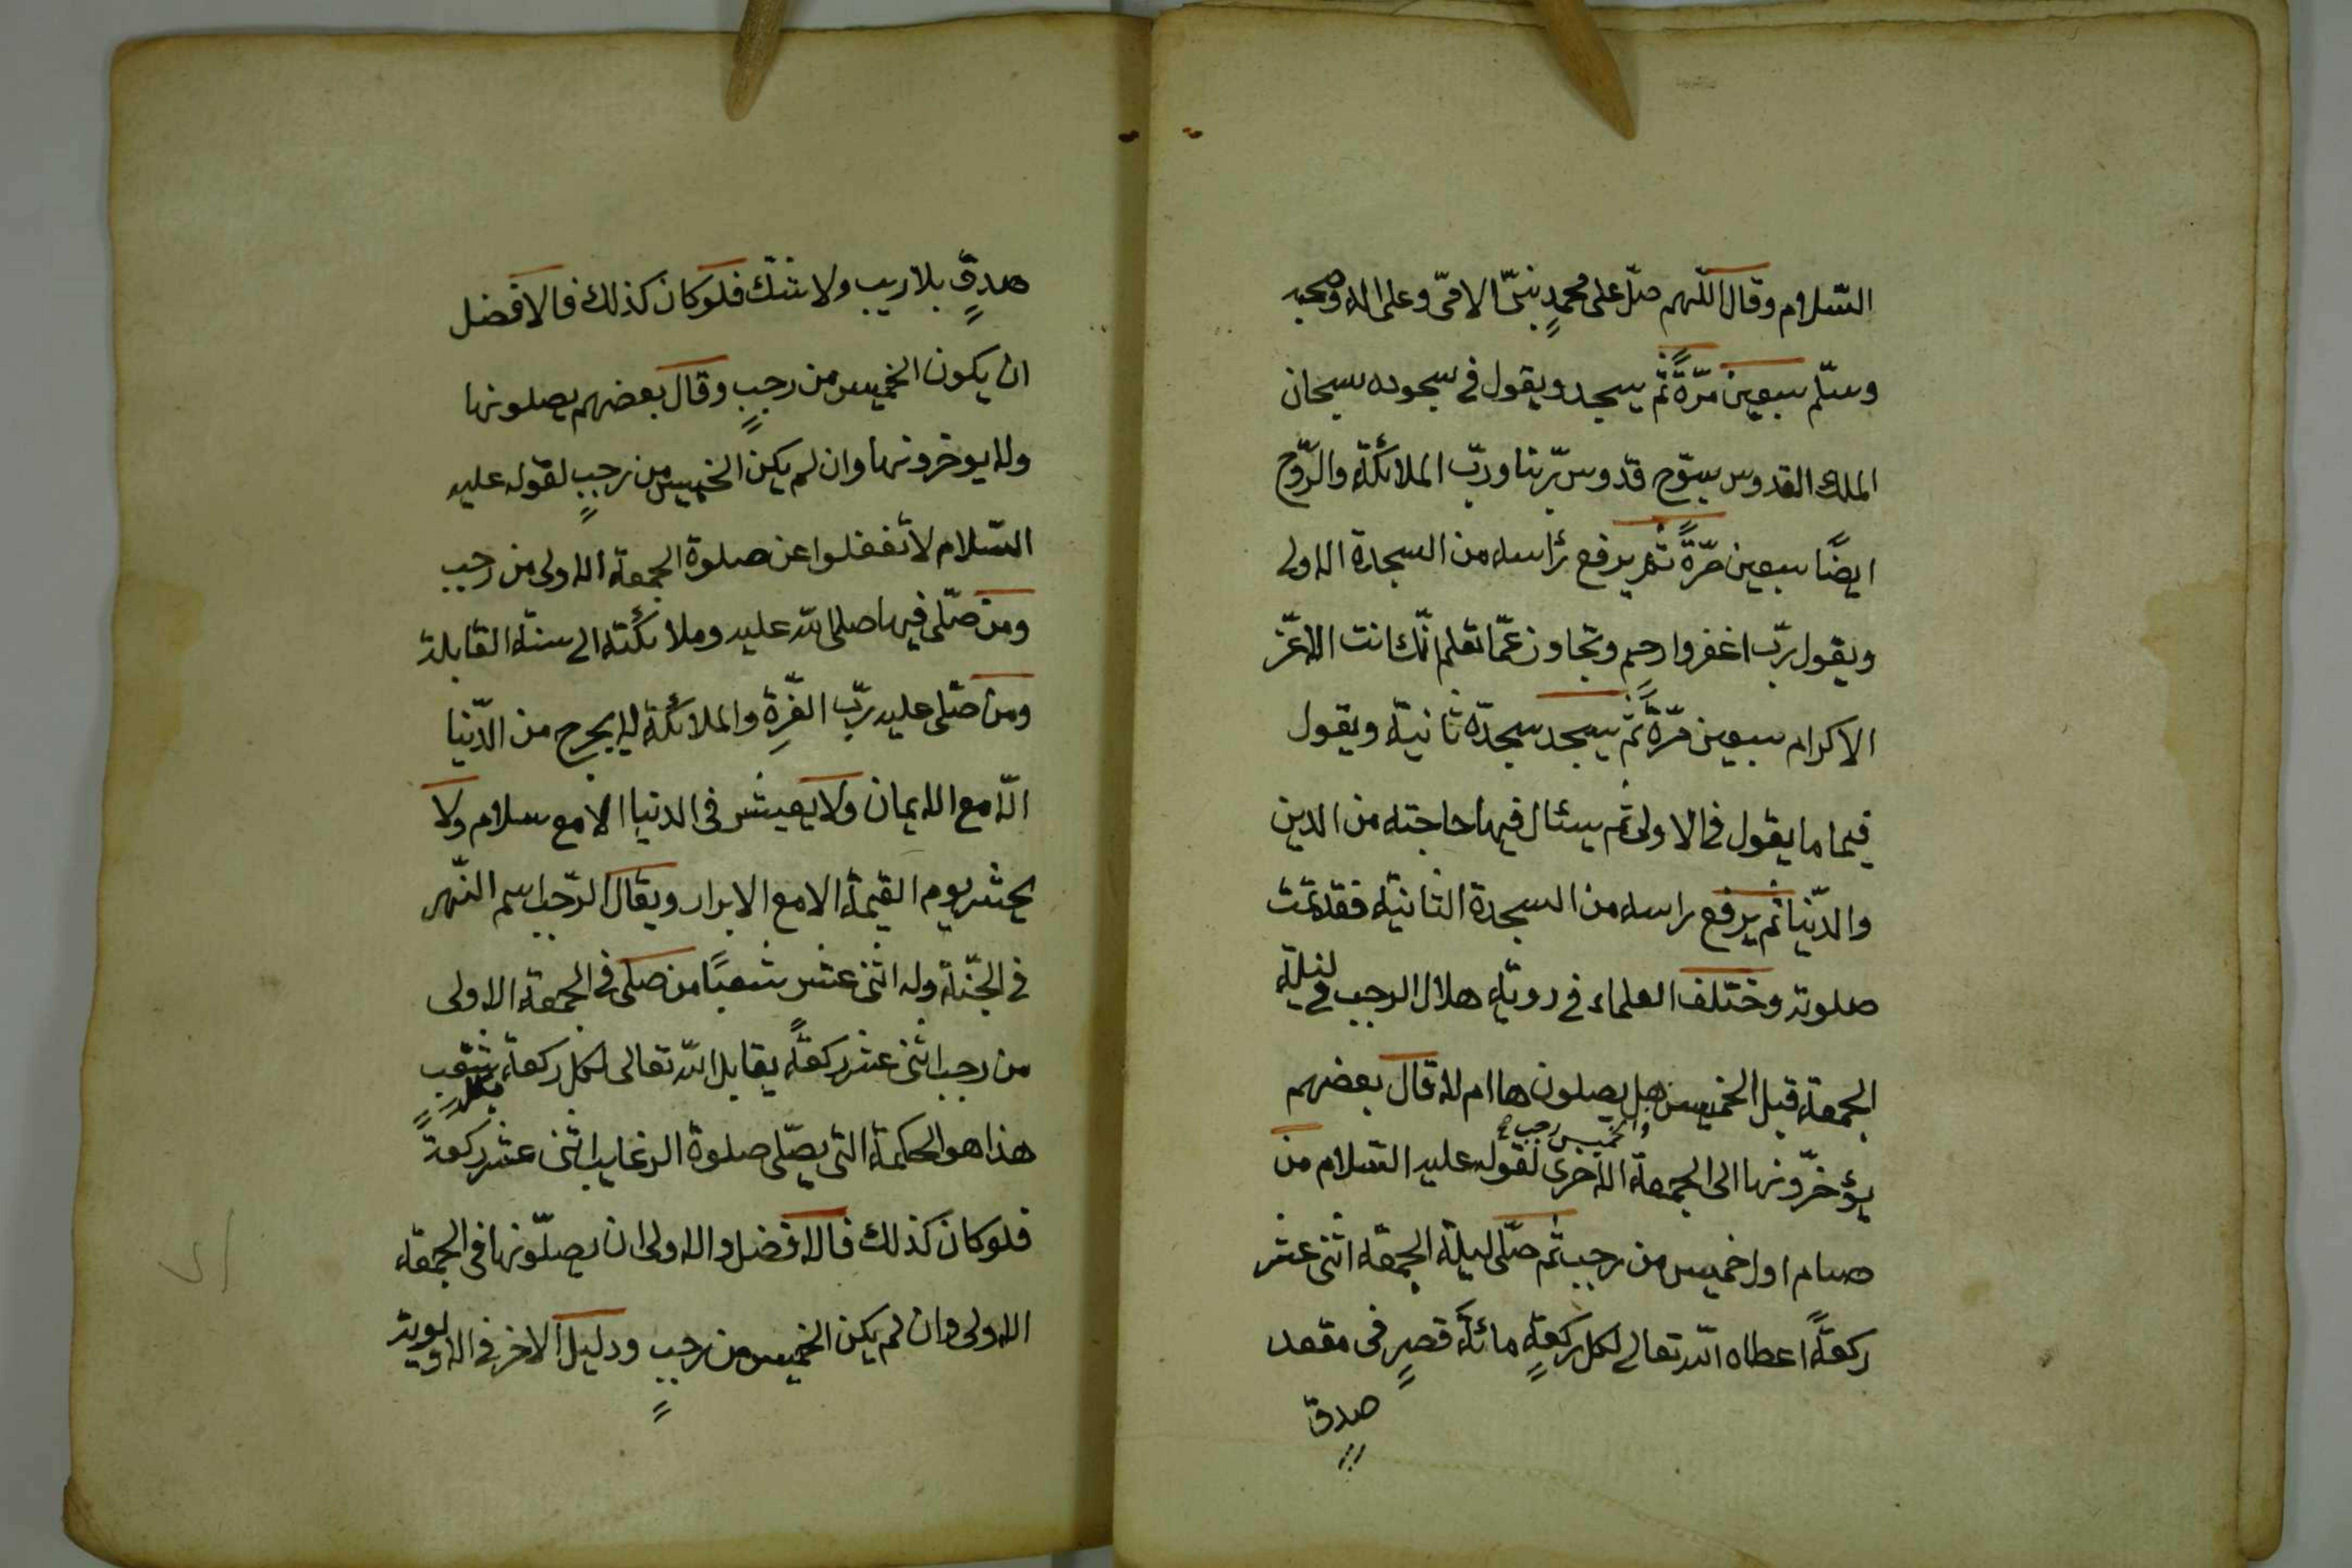 السّلام وقال اللّهم صلّ على محمدٍ نبىّ الامّى وعلى اله وصحبه
وسلّم سبعين مرّةً ثمّ يسجد ويقول فى سجوده سبحان
الملك القدوس سبّوح قدّوس ربّنا وربّ الملائكة والرّوح
ايضًا سبعين مرّةً ثم يرفع رأسه من السجدة الاولى
ويقول ربّ اغفر وارحم وتجاوز عمّا تعلم انّك انت الاعزّ
الاكرام سبعين مرّةً ثمّ يسجد سجدّه ثانيّة ويقول
فيما ما يقول فى الاولى ثم يسئال فيها حاجته من الدين
والدّنيا ثم يرفع راسه من السجدة الثانيّة فقد تمّت
صلوته وختلف العلماء فى رويّة هلال الرجب فى ليلة
الجمعة قبل الخميس هل يصلون ها ام لا قال بعضهم
والخميس رجب
يؤخّرونها الى الجمعة الاخرى لقوله عليه السّلام من
صام اول خميس من رجب ثم صلّى ليلة الجمعة اثنى عشر
ركعةً اعطاه اللّه تعالى لكل ركعةٍ مائة قصرٍ فى مقعد
صدقٍ
صدقٍ بلا ريب ولا شكّ فلو كان كذلك فالافضل
ان يكون الخميس من رجبٍ وقال بعضهم يصلونها
ولا يوخرونها وان لم يكن الخميس من رجبٍ لقوله عليه
السّلام لا تغفلوا عن صلوة الجمعة الاولى من رجب
ومن صلّى فيها صلى اللّه عليه وملائكته الى سنة القابلة
ومن صلّى عليه ربّ العزّة والملائكة لا يخرج من الدّنيا
الّا مع الايمان ولا يعيش فى الدنيا الا مع سلام ولا
يحشر يوم القيمة الا مع الابرار ويقال الرّجب اسم النّهر
فى الجنّة وله اثنى عشر شعبًا من صلى فى الجمعة الاولى
من رجب اثنى عشر ركعةً يقابل اللّه تعالى لكل ركعة شعبٍ
هذا هو الحكمة التى يصّلى صلوة الرغايب اثنى عشر ركعةً
فلو كان كذلك فالافضل والاولى ان يصلّونها فى الجمعة
الاولى وان لم يكن الخميس من رجبٍ ودليل الاخر فى الاولوية